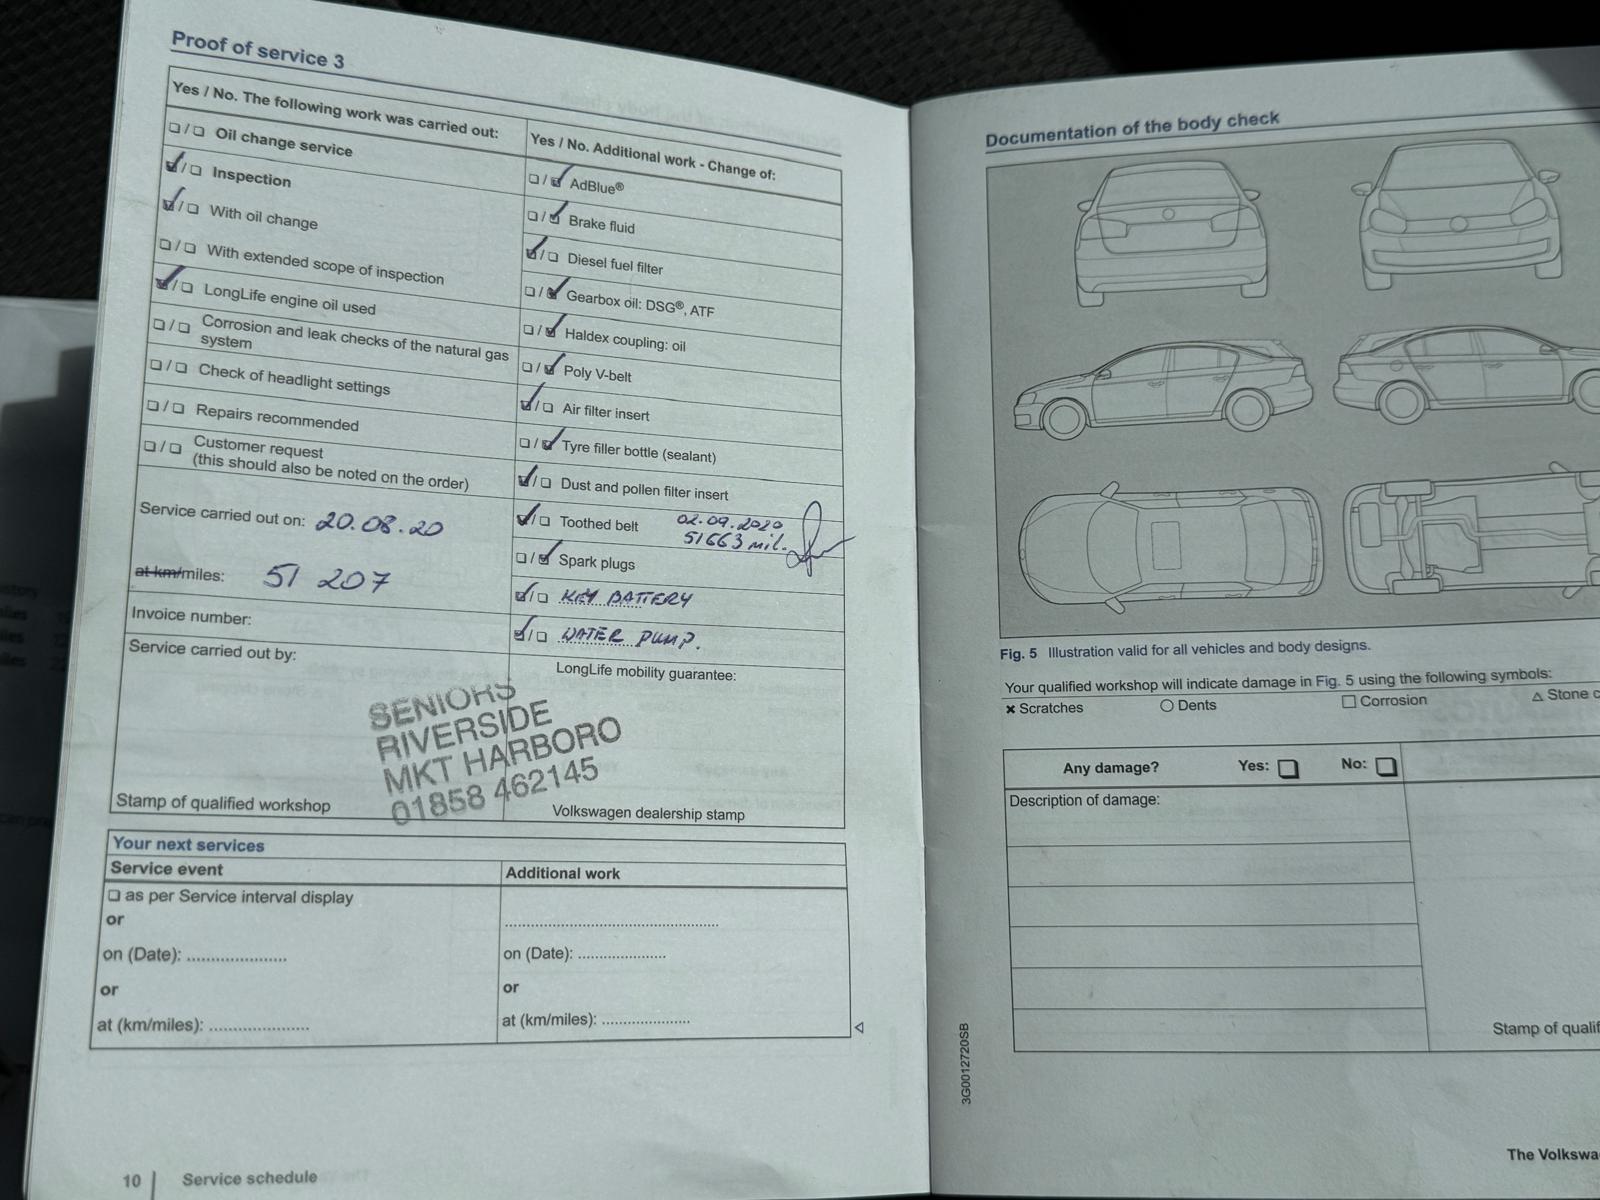 Proof of service 3
Yes / No. The following work was carried out:
❏ / ❏ Oil change service
☑ / ❏ Inspection
☑ / ❏ With oil change
❏ / ❏ With extended scope of inspection
☑ / ❏ LongLife engine oil used
❏ / ❏ Corrosion and leak checks of the natural gas
system
❏ / ❏ Check of headlight settings
❏ / ❏ Repairs recommended
❏ / ❏ Customer request
(this should also be noted on the order)
Service carried out on: 20.08.20
at km/miles: 51 207
Invoice number:
Service carried out by:
Yes / No. Additional work - Change of:
❏ / ☑ AdBlue®
❏ / ☑ Brake fluid
☑ / ❏ Diesel fuel filter
❏ / ☑ Gearbox oil: DSG®, ATF
❏ / ☑ Haldex coupling: oil
❏ / ☑ Poly V-belt
☑ / ❏ Air filter insert
❏ / ☑ Tyre filler bottle (sealant)
☑ / ❏ Dust and pollen filter insert
☑ / ❏ Toothed belt 02.09.2020
51663 mil.
❏ / ☑ Spark plugs
☑ / ❏ KEY BATTERY
☑ / ❏ WATER PUMP.
LongLife mobility guarantee:
SENIORS
RIVERSIDE
MKT HARBORO
01858 462145
Stamp of qualified workshop
Volkswagen dealership stamp
Your next services
Service event
❏ as per Service interval display
or
on (Date): .....................
or
at (km/miles): .....................
Additional work
on (Date): .....................
or
at (km/miles): .....................
10 | Service schedule
Documentation of the body check
Fig. 5 Illustration valid for all vehicles and body designs.
Your qualified workshop will indicate damage in Fig. 5 using the following symbols:
✖ Scratches ○ Dents ☐ Corrosion △ Stone c
Any damage? Yes: ❏ No: ❏
Description of damage:
Stamp of qualif
3G0012720SB
The Volkswa